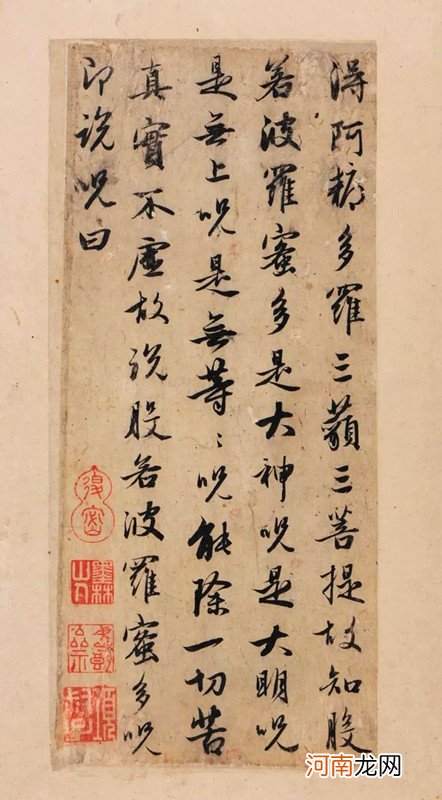 得阿耨多羅三藐三菩提故知般
若波羅蜜多是大神呪是大明呪
是無上呪是無等〻呪能除一切苦
真實不虛故説般若波羅蜜多呪
即説呪曰
墨林山人
河南龙网